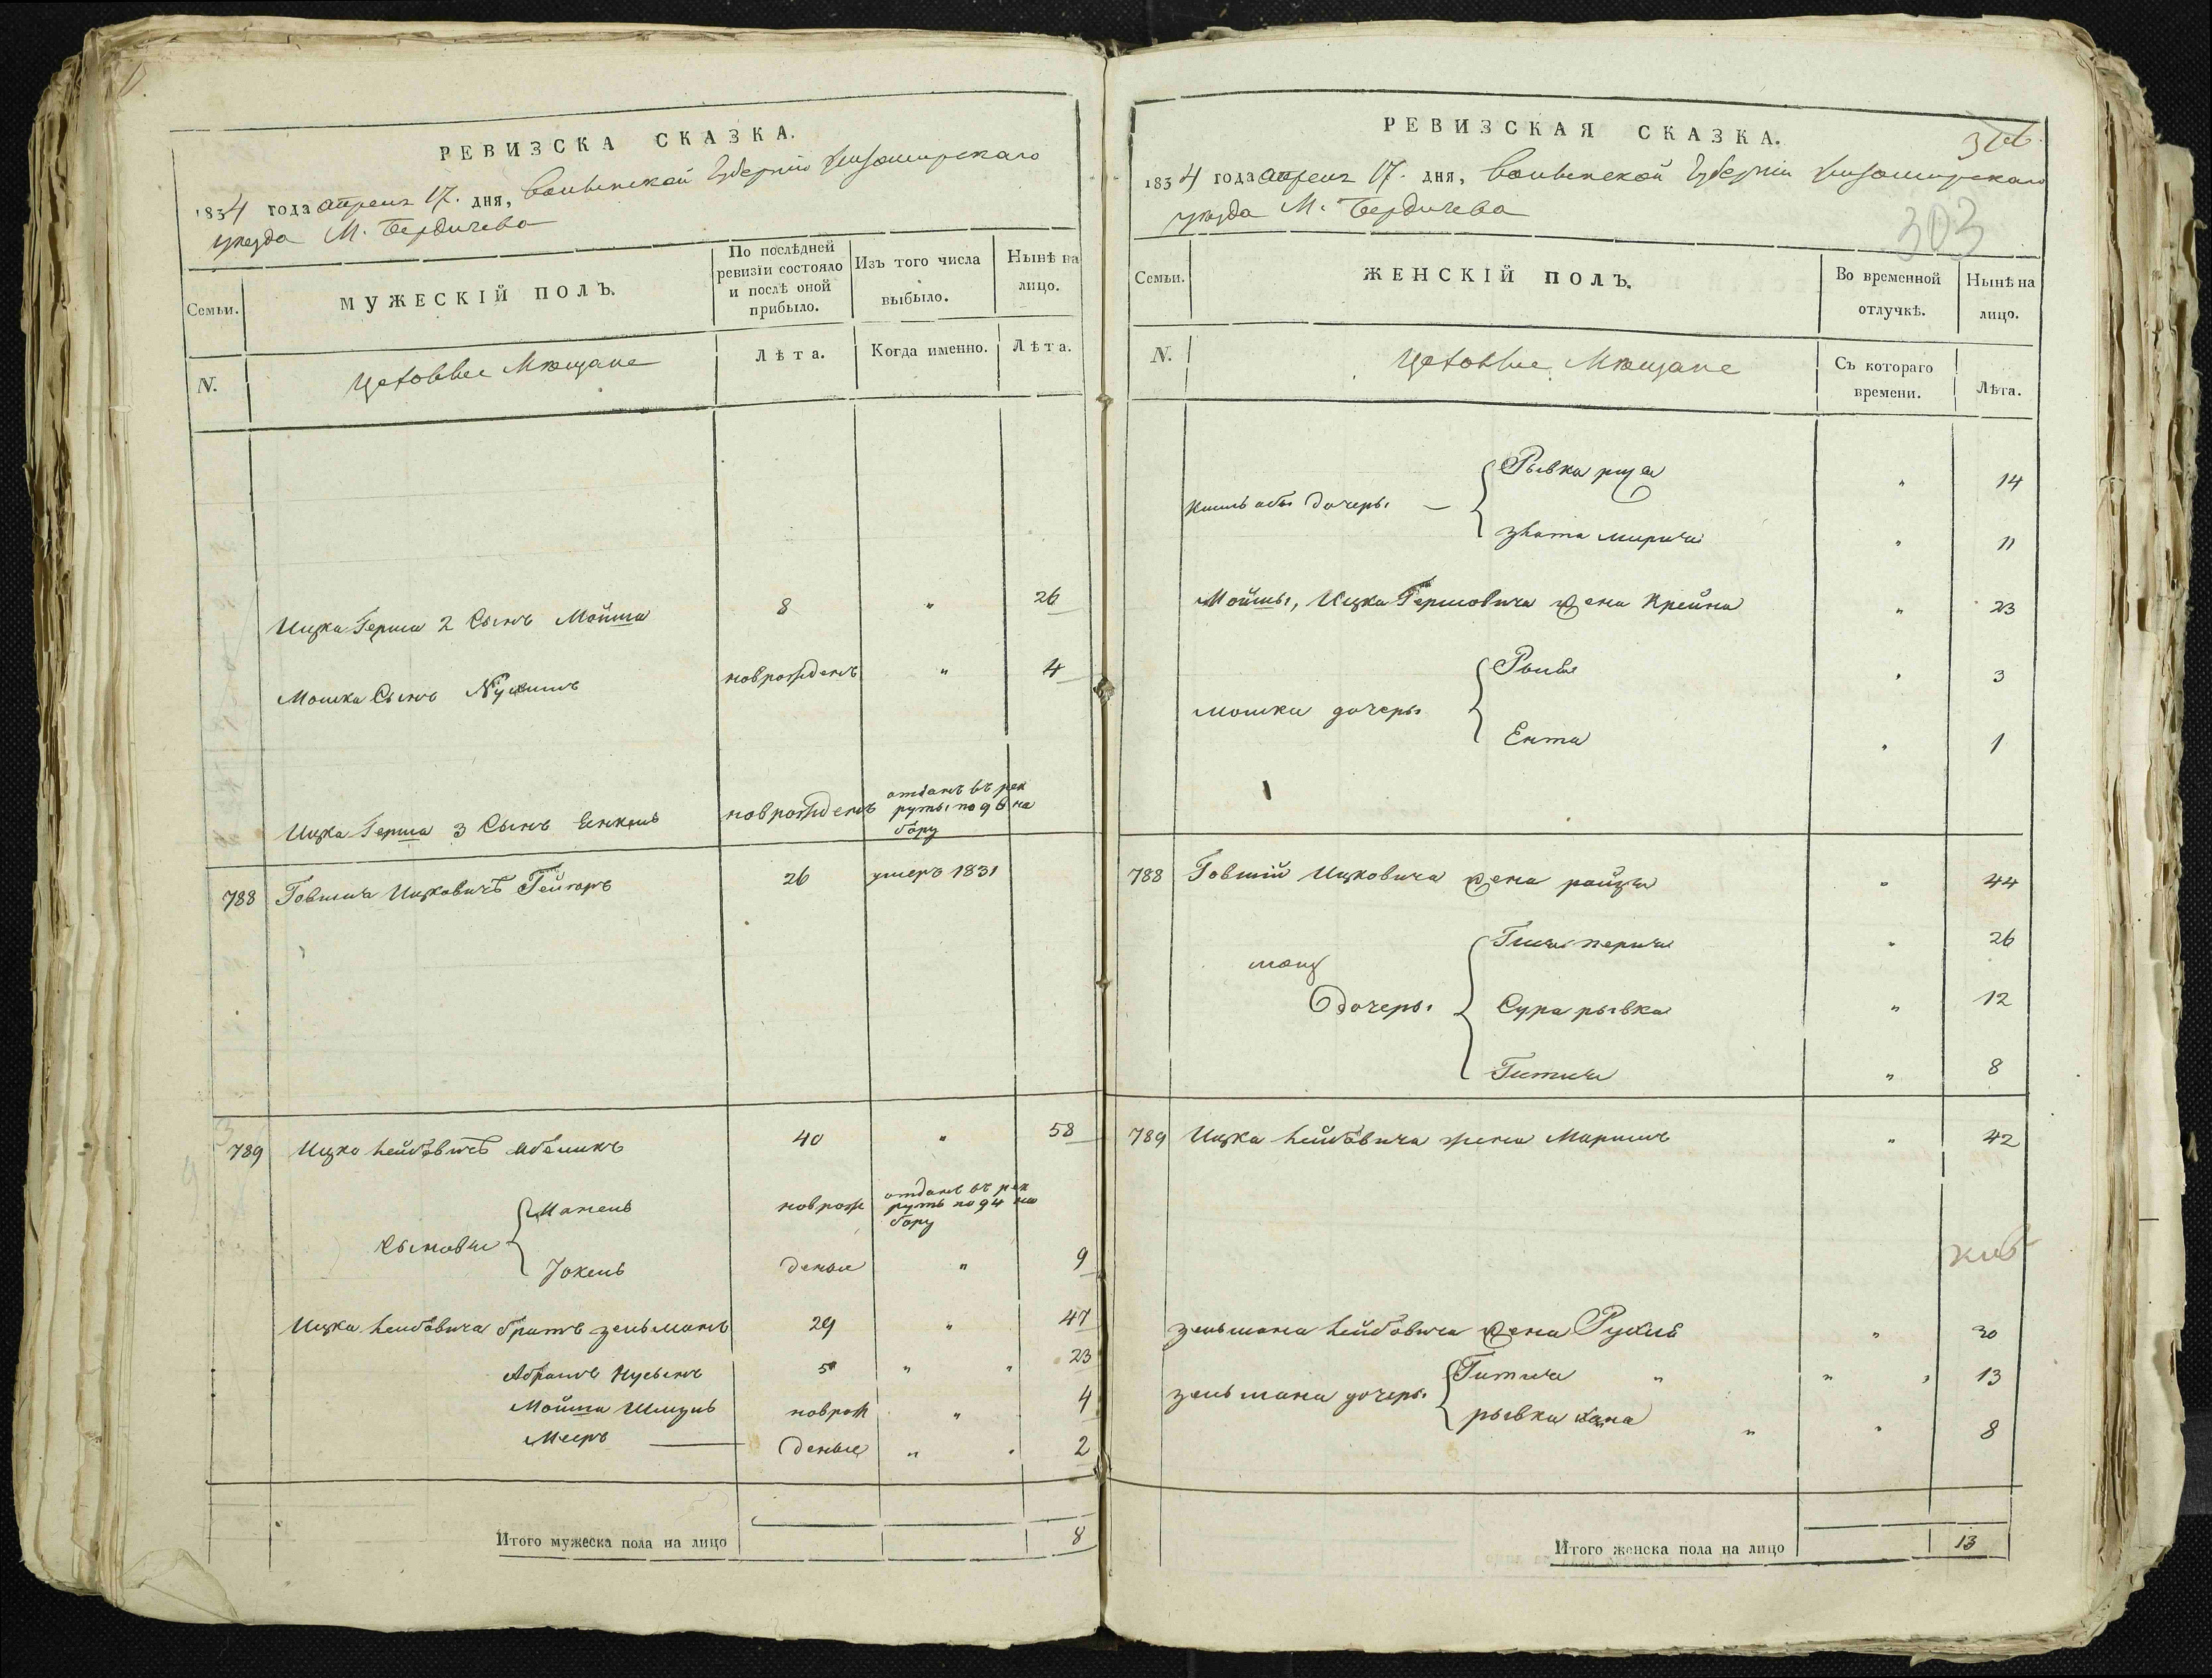 РЕВИЗСКА СКАЗКА.
1834 года апреля 17. дня, Волынской Губернии Житомирскаго
уезда М. Бердичева
Семьи.
МУЖЕСКІЙ ПОЛЪ.
По послѣдней
ревизіи состояло
и послѣ оной
прибыло.
Изъ того числа
выбыло.
Нынѣ на
лицо.
N.
Цеховые Мещане
Лѣта.
Когда именно.
Лѣта.
Ицка Герша 2 Сынъ Мойша 8 " 26
Мошка Сынъ новрожденъ " 4
Ицка Герша 3 Сынъ новрожденъ отданъ въ рек
руты по 96 на
бору
788 Говшия Ицковичъ 26 умеръ 1831
789 Ицко Лейбовичъ 40 " 58
Сыновья
новрож отданъ въ рек
рутъ по 94 на
бору
Іокель деные " 9
Ицка Лейбовича братъ Зельманъ 29 " 47
Абрамъ Нусынъ 5 " " 23
Мойша Шмуль новрож " 4
Мееръ — деные " " 2
Итого мужеска пола на лицо 8
РЕВИЗСКАЯ СКАЗКА.
303
1834 года апреля 17. дня, Волынской Губернии Житомирскаго
уезда М. Бердичева
Семьи.
ЖЕНСКІЙ ПОЛЪ.
Во временной
отлучкѣ.
Нынѣ на
лицо.
N.
Цеховые Мещане
Съ котораго
времени.
Лѣта.
Рывка " 14
дочеры —
Злота " 11
Мойшы, Ицка Гершовича жена Крейна " 23
" 3
Мошки дочеры
Ента " 1
788 Говший Ицковича жена райзя " 44
" 26
дочеры
Сура рывка " 12
Гитля " 8
789 Ицка Лейбовича жена " 42
Зельмана Лейбовича жена Рухля " 30
Гитля " " " 13
Зельмана дочеры
рывка хана " " 8
Итого женска пола на лицо 13